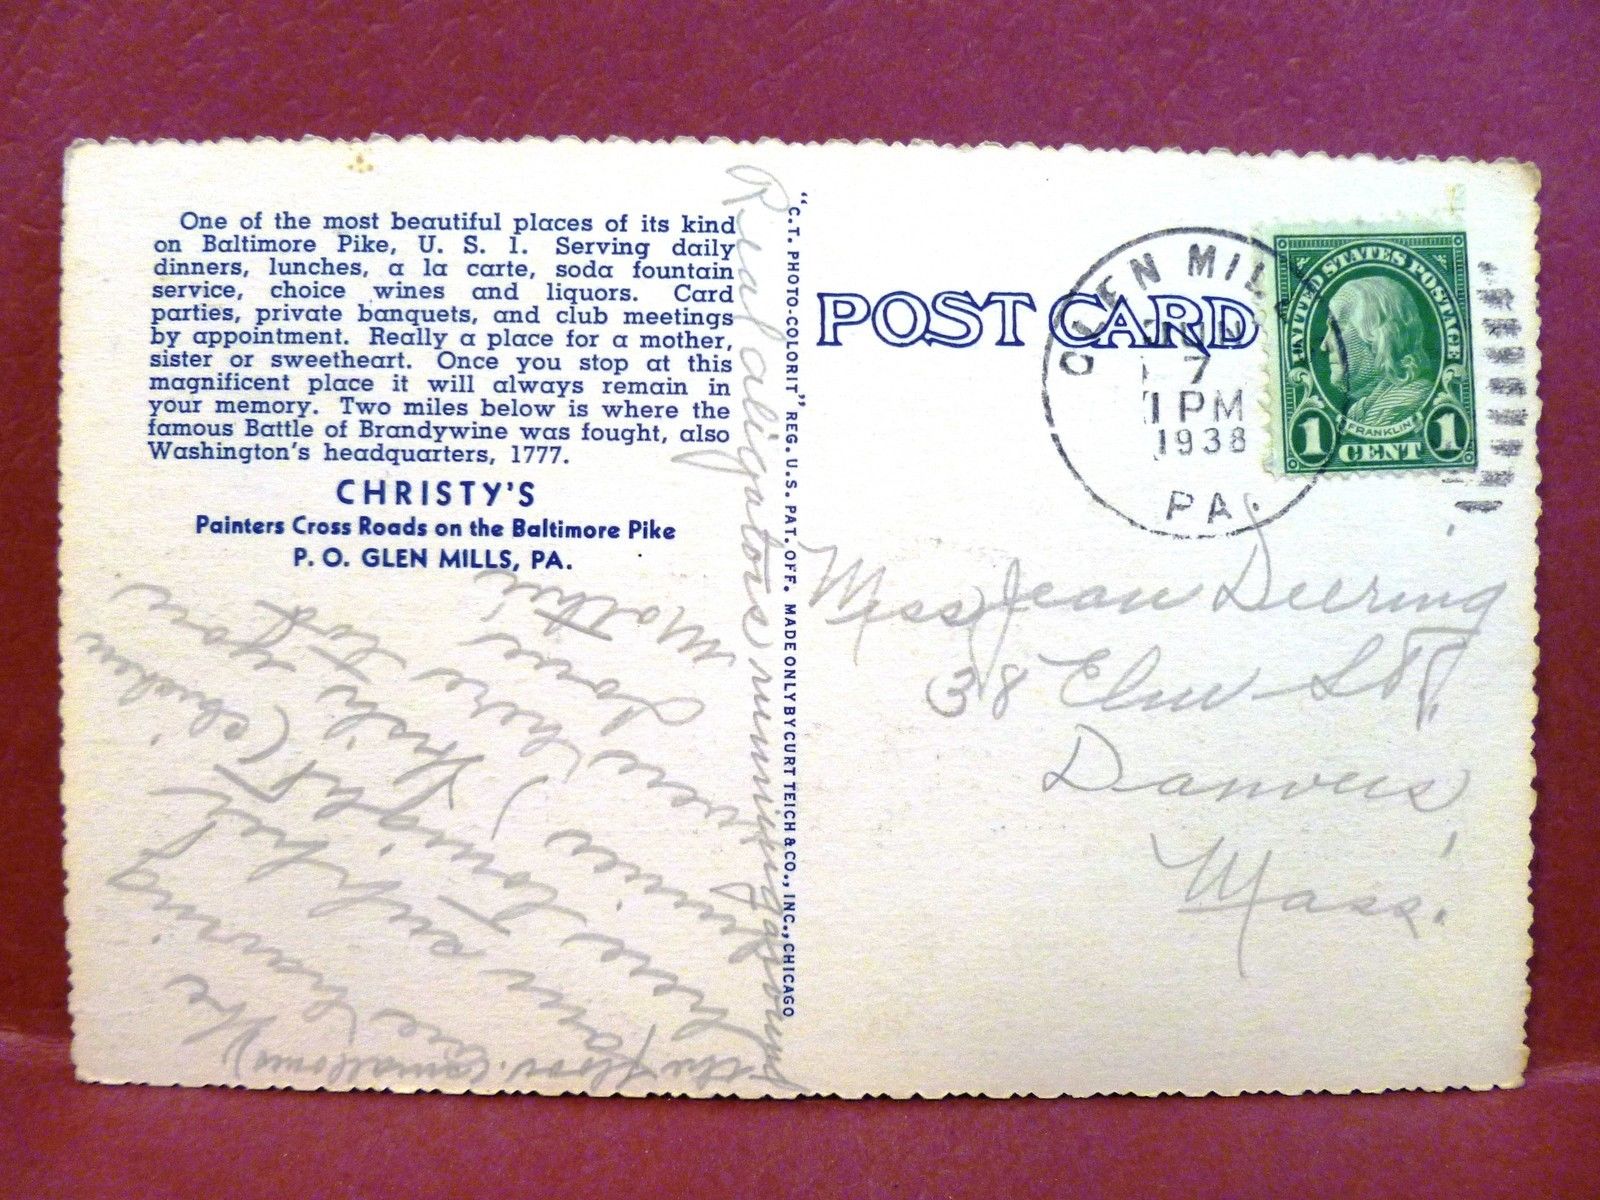 One of the most beautiful places of its kind
on Baltimore Pike, U. S. 1. Serving daily
dinners, lunches, a la carte, soda fountain
service, choice wines and liquors. Card
parties, private banquets, and club meetings
by appointment. Really a place for a mother,
sister or sweetheart. Once you stop at this
magnificent place it will always remain in
your memory. Two miles below is where the
famous Battle of Brandywine was fought, also
Washington's headquarters, 1777.
CHRISTY'S
Painters Cross Roads on the Baltimore Pike
P. O. GLEN MILLS, PA.
We
are having
our supper
here tonight (chicken
Junie) Wish you
were here too
Love
Mother
Real aligators running around
the floor. (small ones)
"C.T. PHOTO-COLORIT" REG. U.S. PAT. OFF. MADE ONLY BY CURT TEICH & CO., INC., CHICAGO
POST CARD
GLEN MILLS
JUN
7
1 PM
1938
PA.
UNITED STATES POSTAGE
FRANKLIN
1 CENT 1
Miss Jean Deering
38 Elm St.
Danvers
Mass.